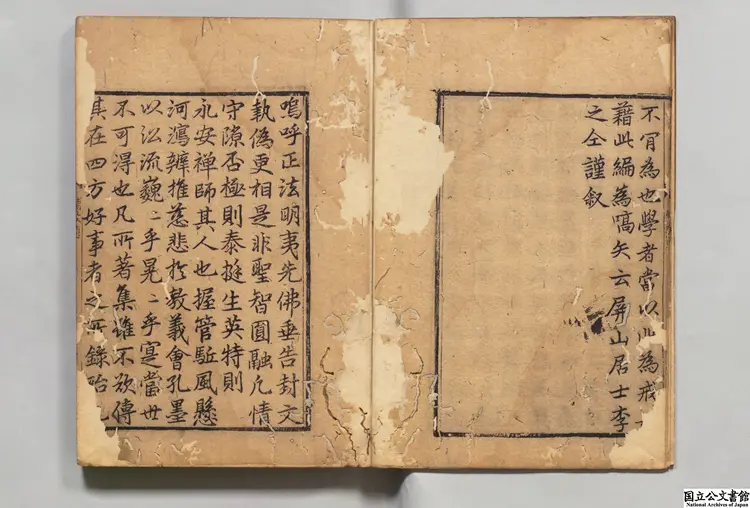 不肎為也學者當以此為戒
藉此編為嚆矢云屏山居士李
之仝謹叙
嗚呼正法明夷先佛垂告封文
執偽更相是非聖智圓融凢情
守隙否極則泰挺生英特則
永安禅師其人也握管駈風懸
河瀉辨推慈悲於教義會孔墨
以㳂流巍〻乎晃〻乎寔當世
不可得也凡所著集雖不欲傳
其在四方好事者之所錄貽
国立公文書館
National Archives of Japan